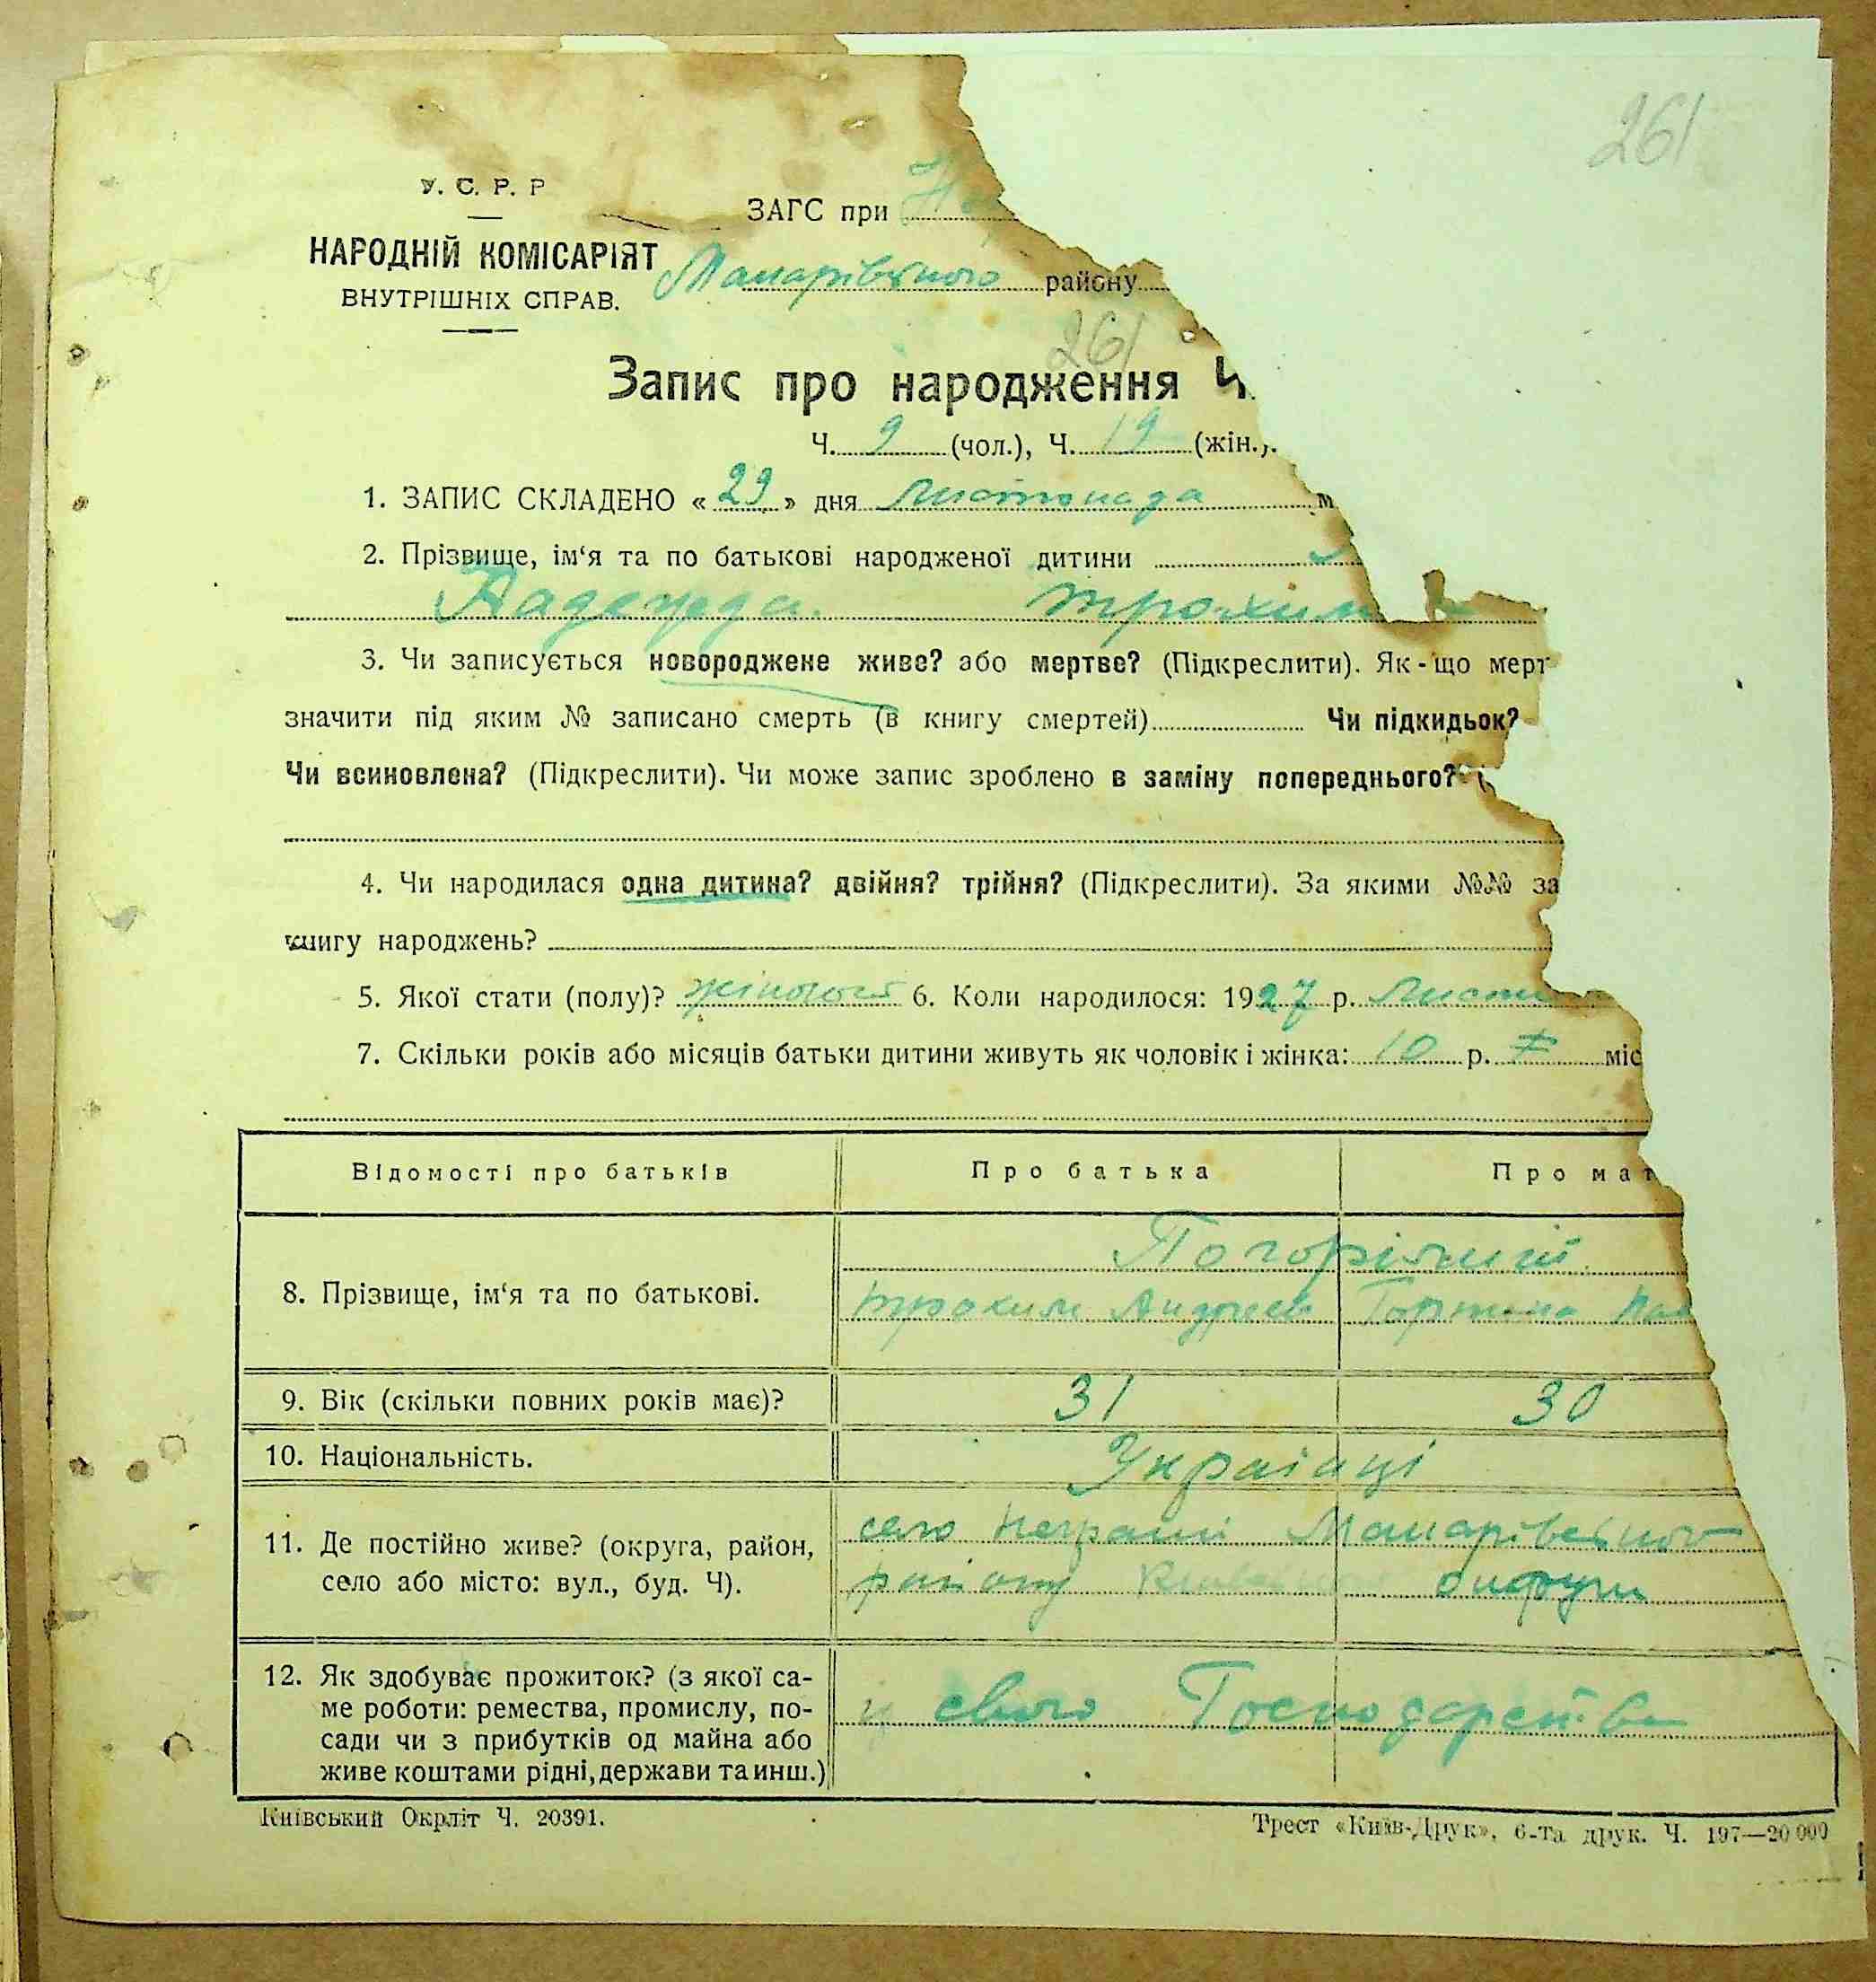 261
У. С. Р. Р
ЗАГС при
НАРОДНІЙ КОМІСАРІЯТ
Макарівського району
ВНУТРІШНІХ СПРАВ.
261
Запис про народження Ч.
Ч. 9 (чол.), Ч. 19 (жін.).
1. ЗАПИС СКЛАДЕНО « 29 » дня листопада м
2. Прізвище, ім‘я та по батькові народженої дитини
Надежда Трохим
3. Чи записується новороджене живе? або мертве? (Підкреслити). Як-що мерт
значити під яким № записано смерть (в книгу смертей) Чи підкидьок?
Чи всиновлена? (Підкреслити). Чи може запис зроблено в заміну попереднього? (
4. Чи народилася одна дитина? двійня? трійня? (Підкреслити). За якими №№ за
книгу народжень?
5. Якої стати (полу)? жіночої 6. Коли народилося: 1927 р. Листоп
7. Скільки років або місяців батьки дитини живуть як чоловік і жінка: 10 р. міс
Відомості про батьків Про батька Про мат
8. Прізвище, ім‘я та по батькові. Погорілий
Трохим Андреев Горпина Пав
9. Вік (скільки повних років має)? 31 30
10. Національність. Украінці
11. Де постійно живе? (округа, район, село Неграші Макарівского
село або місто: вул., буд. Ч). району Київ округи
12. Як здобуває прожиток? (з якої са-
ме роботи: ремества, промислу, по- свого Господарства
сади чи з прибутків од майна або
живе коштами рідні, держави та инш.)
Київський Окрліт Ч. 20391. Трест «Київ-Друк», 6-та друк. Ч. 197—20 000